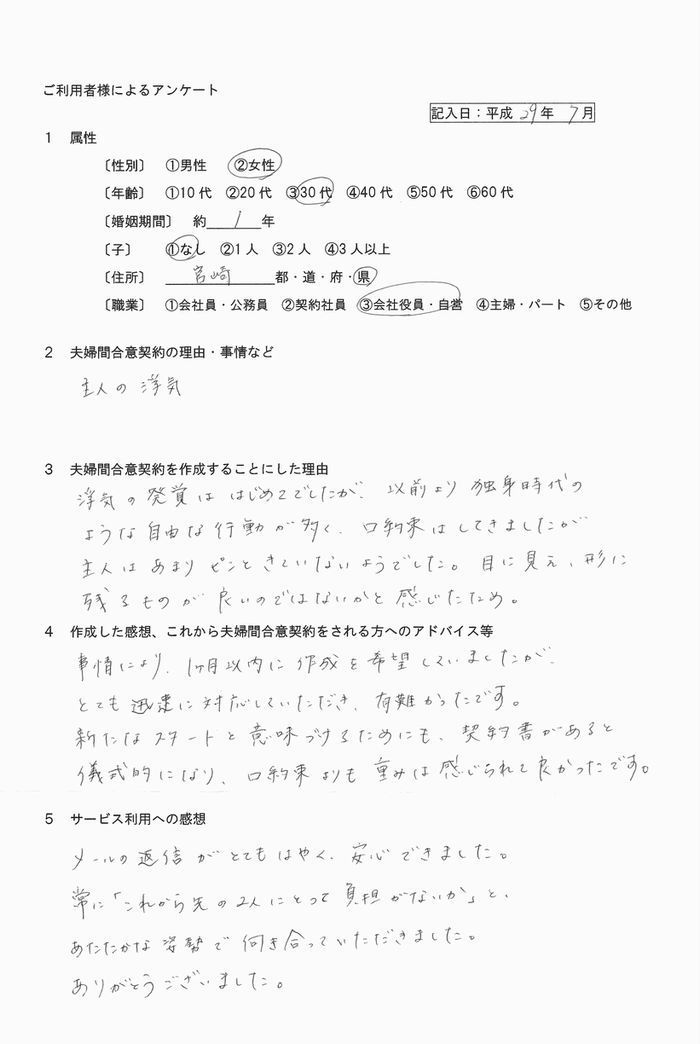 ご利用者様によるアンケート
記入日：平成 29年 7月
1 属性
〔性別〕 ①男性 ②女性
〔年齢〕 ①10代 ②20代 ③30代 ④40代 ⑤50代 ⑥60代
〔婚姻期間〕 約 1 年
〔子〕 ①なし ②1人 ③2人 ④3人以上
〔住所〕 宮崎 都・道・府・県
〔職業〕 ①会社員・公務員 ②契約社員 ③会社役員・自営 ④主婦・パート ⑤その他
2 夫婦間合意契約の理由・事情など
主人の浮気
3 夫婦間合意契約を作成することにした理由
浮気の発覚は はじめてでしたが、以前より 独身時代の
ような自由な行動が多く、口約束はしてきましたが
主人は あまり ピンと きていないようでした。目に見え、形に
残るものが 良いのではないかと 感じたため。
4 作成した感想、これから夫婦間合意契約をされる方へのアドバイス等
事情により、1ヶ月以内に作成を希望していましたが、
とても 迅速に対応していただき、有難かったです。
新たなスタートと意味づけるためにも、契約書があると
儀式的になり、口約束よりも 重みは感じられて良かったです。
5 サービス利用への感想
メールの返信がとてもはやく、安心できました。
常に「これから先の2人にとって負担がないか」と、
あたたかな姿勢で向き合っていただきました。
ありがとうございました。